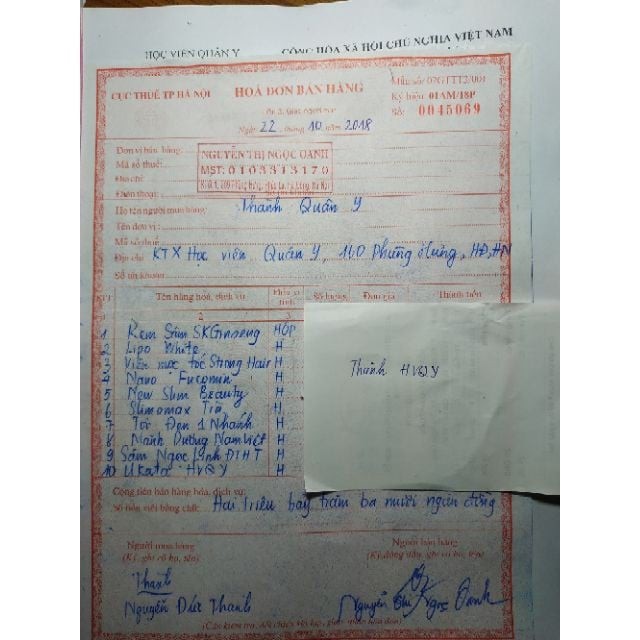 HỌC VIỆN QUÂN Y
CỘNG HÒA XÃ HỘI CHỦ NGHĨA VIỆT NAM
CỤC THUẾ TP HÀ NỘI
HOÁ ĐƠN BÁN HÀNG
Mẫu số: 02GTTT3/001
Ký hiệu: 01AM/18P
Số: 0045069
Ngày 22 tháng 10 năm 2018
Đơn vị bán hàng:
NGUYỄN THỊ NGỌC OANH
Mã số thuế:
MST: 0103313170
Địa chỉ:
Điện thoại:
Họ tên người mua hàng: Thành Quân Y
Tên đơn vị:
Mã số thuế:
Địa chỉ: KTX Học viện Quân Y, 160 Phùng Hưng, HĐ, HN
Số tài khoản:
STT Tên hàng hoá, dịch vụ Số lượng Đơn giá Thành tiền
2 3
1 Kem Sâm SKGinseng HỘP
2 Lipo White H
3 Viên mọc tóc Strong Hair H
4 Nano Fucomin H
5 New Slim Beauty H
6 Slimomax Tím H
7 Tỏi Đen 1 Nhánh H
8 Mãnh Dương Nam Việt H
9 Sâm Ngọc Linh ĐTHT H
10 Ukata HVQY H
Thành HVQY
Cộng tiền bán hàng hóa, dịch vụ:
Số tiền viết bằng chữ: Hai triệu bảy trăm ba mươi ngàn đồng
Người mua hàng
Người bán hàng
(Ký, ghi rõ họ, tên)
(Ký, đóng dấu, ghi rõ họ, tên)
Thành
Nguyễn Đức Thành
Nguyễn Thị Ngọc Oanh